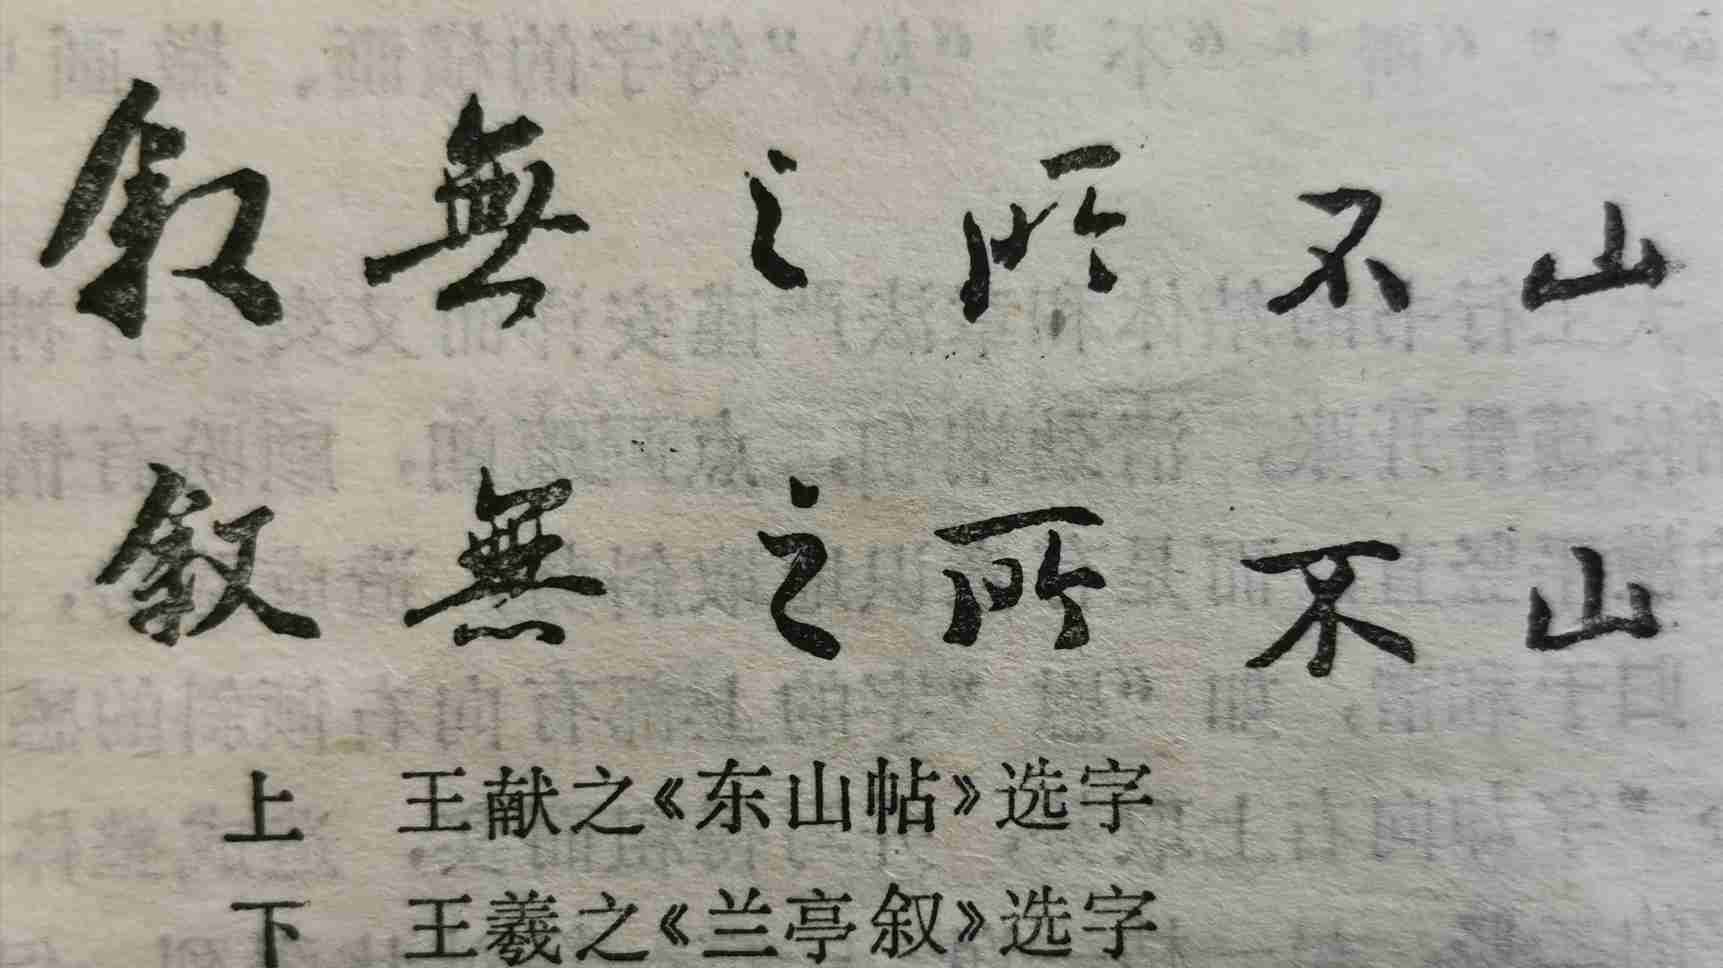 叙無之所不山
叙無之所不山
上 王献之《东山帖》选字
下 王羲之《兰亭叙》选字